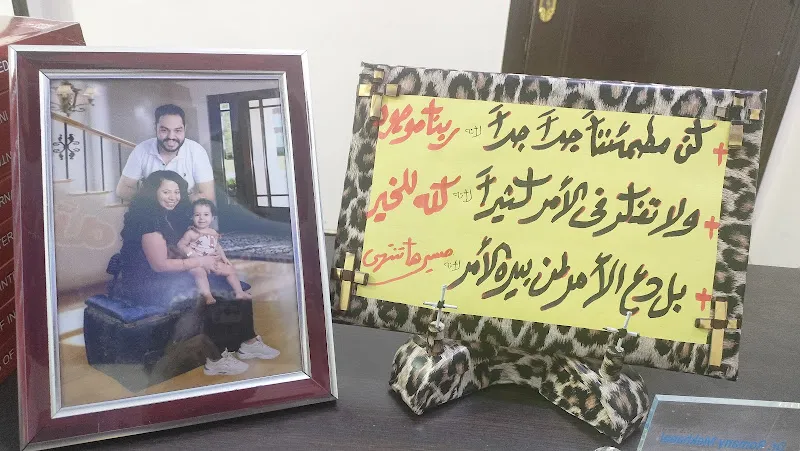 + كن مطمئنناً جداً جداً ربنا موجود
+ ولا تفكر فى الأمر كثيراً كله للخير
+ بل دع الأمر لمن بيده الأمر مسيرها تنتهى